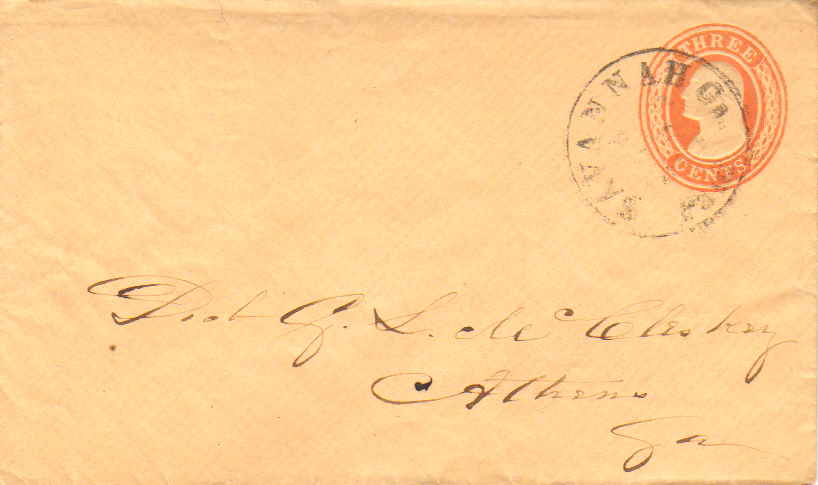 THREE
CENTS
SAVANNAH Ga.
G. L. McCleskey
Athens
Ga